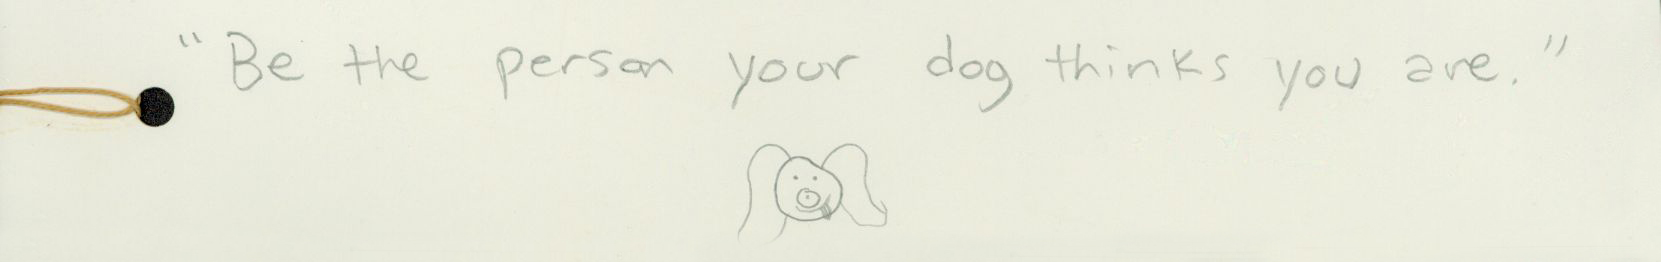 "Be the person your dog thinks you are."